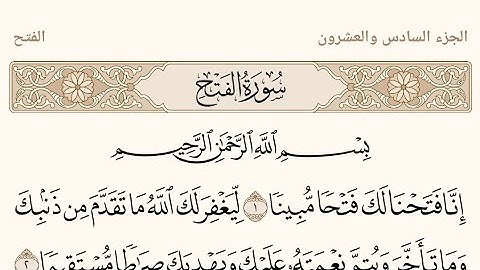 الجزء السادس والعشرون الفتح
سُورَةُ الفَتْحِ
بِسْمِ اللَّهِ الرَّحْمَٰنِ الرَّحِيمِ
إِنَّا فَتَحْنَا لَكَ فَتْحًا مُّبِينًا ١ لِّيَغْفِرَ لَكَ اللَّهُ مَا تَقَدَّمَ مِن ذَنۢبِكَ
وَمَا تَأَخَّرَ وَيُتِمَّ نِعْمَتَهُۥ عَلَيْكَ وَيَهْدِيَكَ صِرَٰطًا مُّسْتَقِيمًا ٢